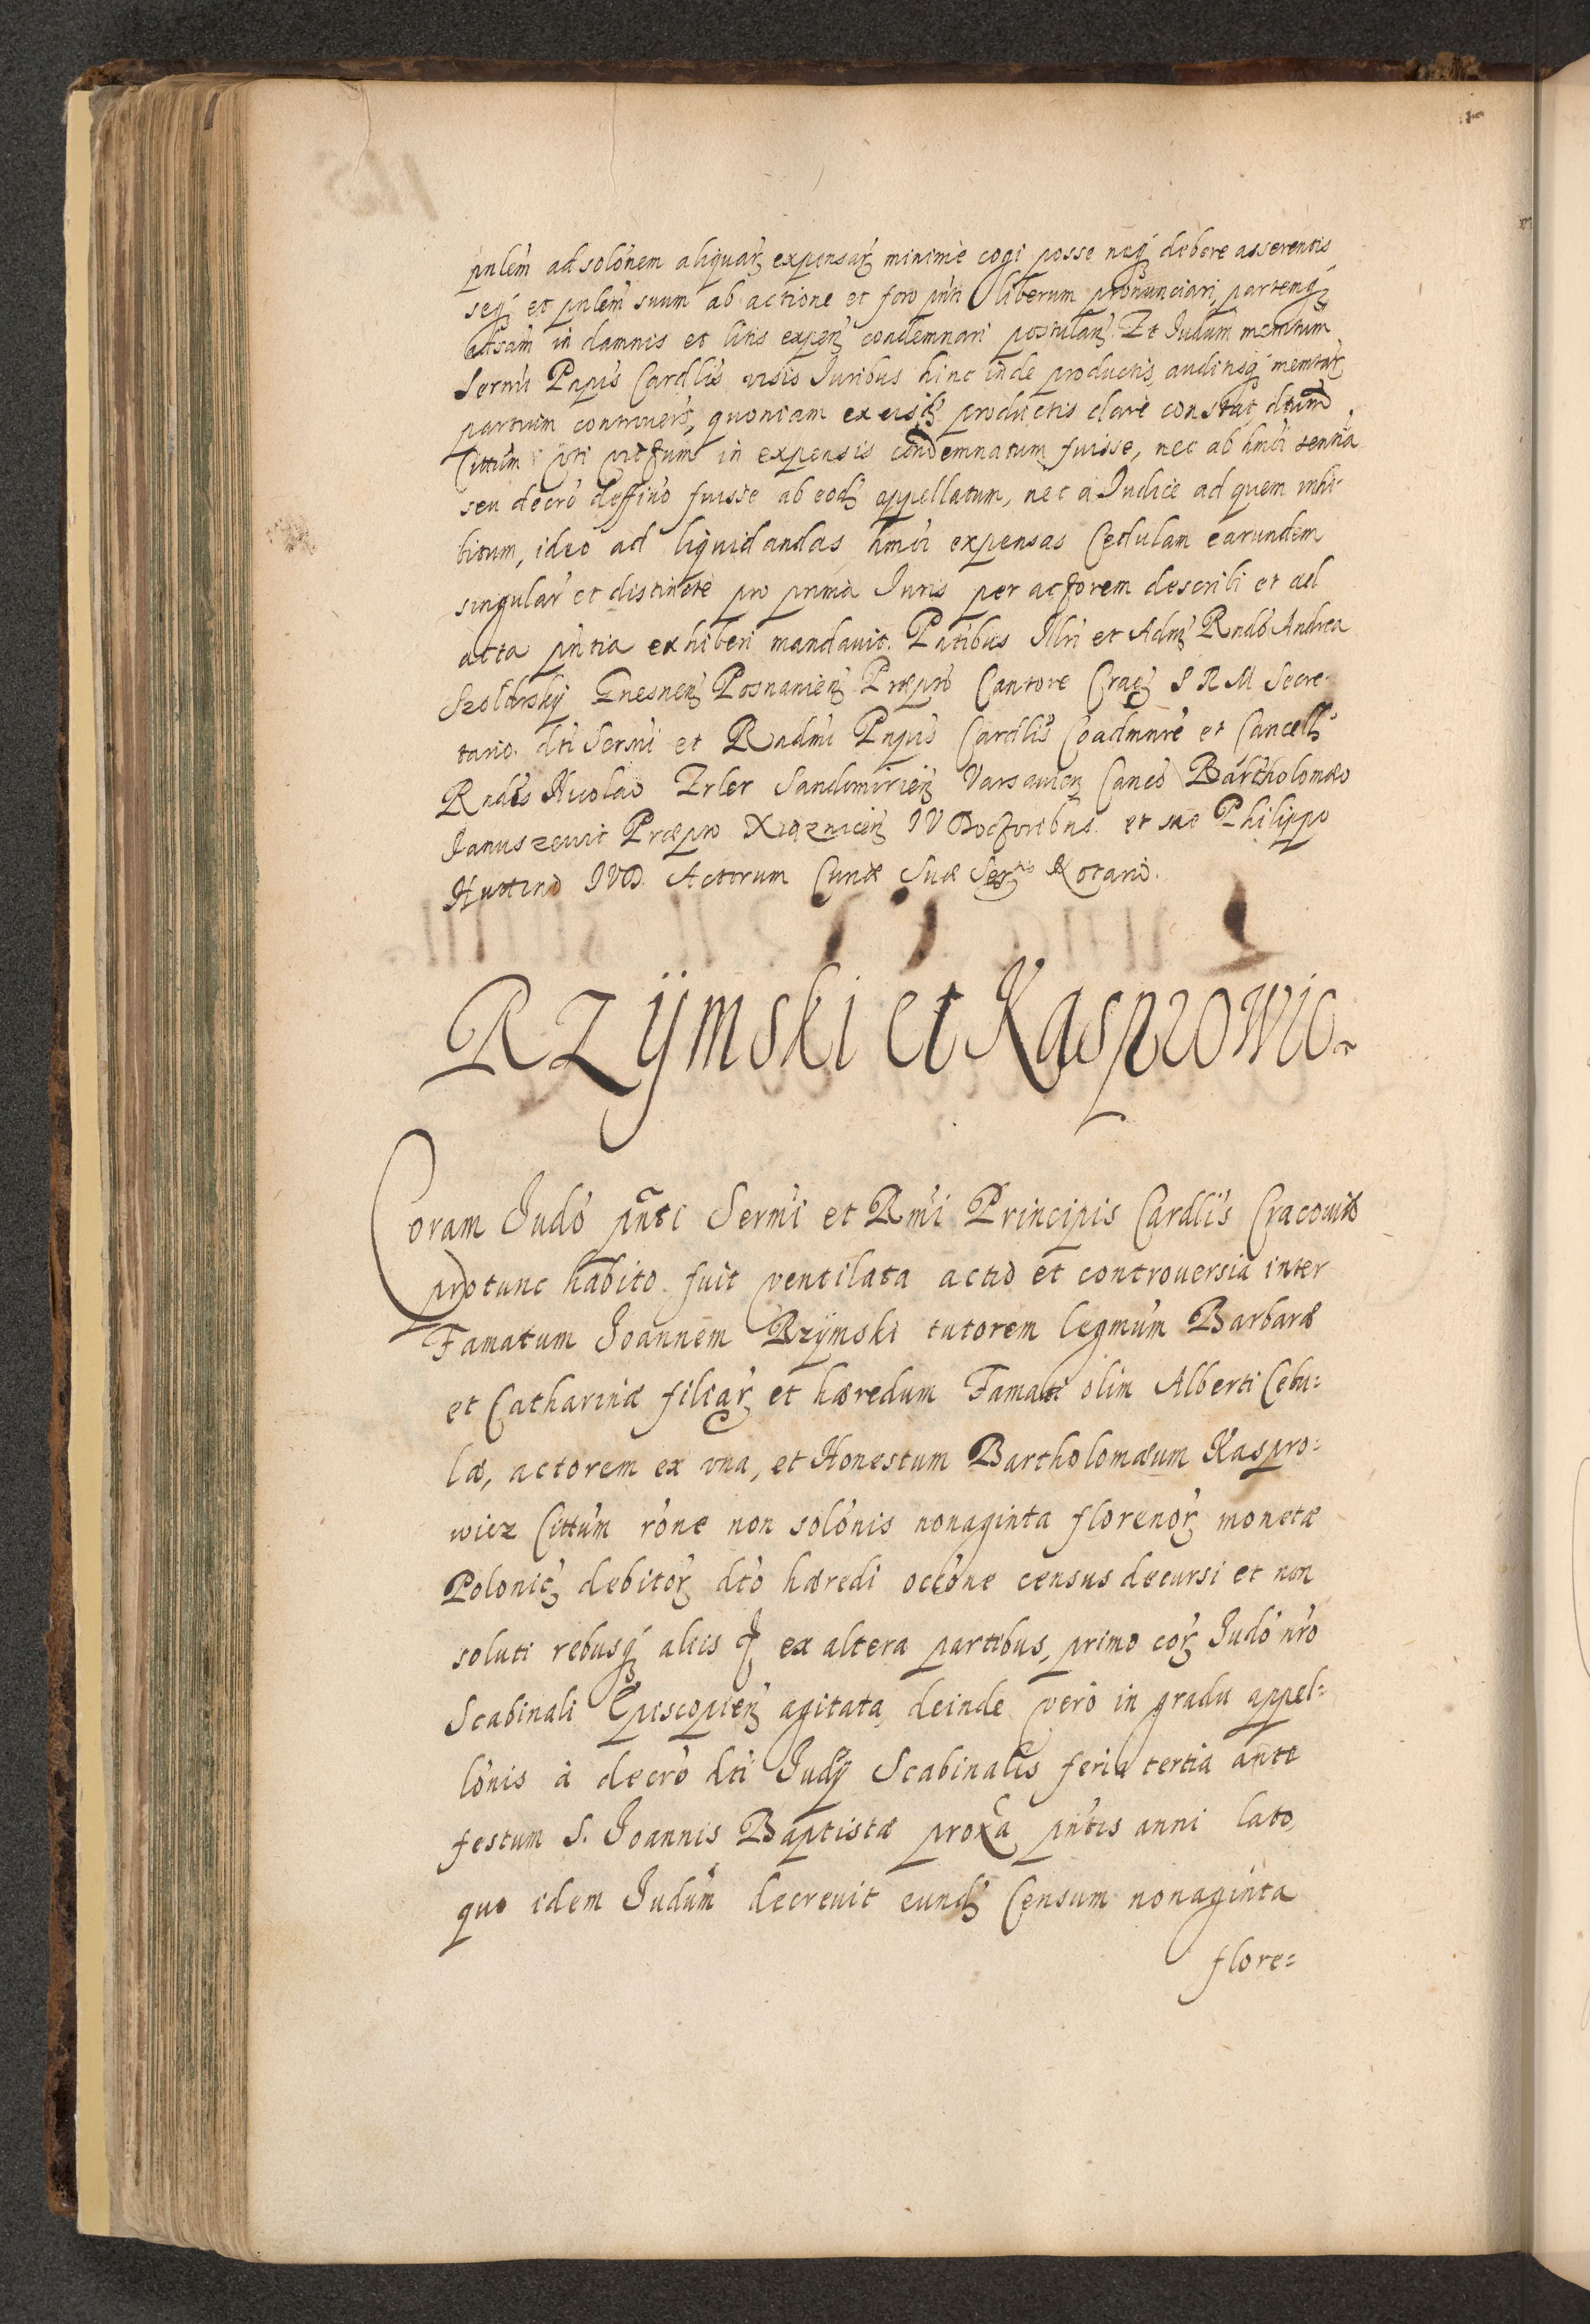 pnlem ad solonem aliquar expensar minime cogi posse neq debere asserentis
seq et pnlem suum ab actione et foro pnti liberum pronunciari, partemq
adsam in damnis et litis expen condemnari postulan. Et Iudum memtum
Sermi Pnpis Cardlis visis Iuribus hinc inde productis, auditisq memtar
partium controuers, quoniam ex eisd productis clare constat dtum
Cittum in expensis condemnatum fuisse, nec ab hmoi sentia
seu decro deffiuo fuisse ab eod appellatum, nec a Iudice ad quem inhi-
bitum, ideo ad liquidandas hmoi expensas Cedulam earundem
singular et distincte pro prima Iuris per actorem describi et ad
acta pntia exhiberi mandauit. Pntibus Illri et Adm Rndo Andrea
Szoldrsky Gnesnen Posnanien Præpro Cantore Crac S R M Secre-
tario dti Sermi et Rndmi Pnpis Cardlis Coadmnre et Cancell
Rndis Nicolao Erler Sandomirien Varsauien Canco Bartholomæo
Januszewit Præpro Xiaznicen IV Doctoribus et me Philippo
Huttino IVD. Actorum Curiæ Suæ Ser Notario.
RZÿmski et Kasprowic
Coram Iudo pnti Sermi et Rmi Principis Cardlis Cracouiæ
protunc habito fuit ventilata actio et controuersia inter
Famatum Joannem Rzÿmski tutorem legmum Barbaræ
et Catharinæ filiar et hæredum Famati olim Alberti Cebu=
læ, actorem ex vna, et Honestum Bartholomæum Kaspro=
wicz Cittum rone non solonis nonaginta florenor monetæ
Polonic debitor dto hæredi occone census decursi et non
soluti rebusq aliis ex altera partibus, primo cor Iudo nro
Scabinali Episcopien agitata, deinde vero in gradu appel=
lonis à decro dti Iudÿ Scabinalis feria tertia ante
festum S. Joannis Baptistæ proxa pntis anni lato,
quo idem Iudum decreuit eund Censum nonaginta
flore=